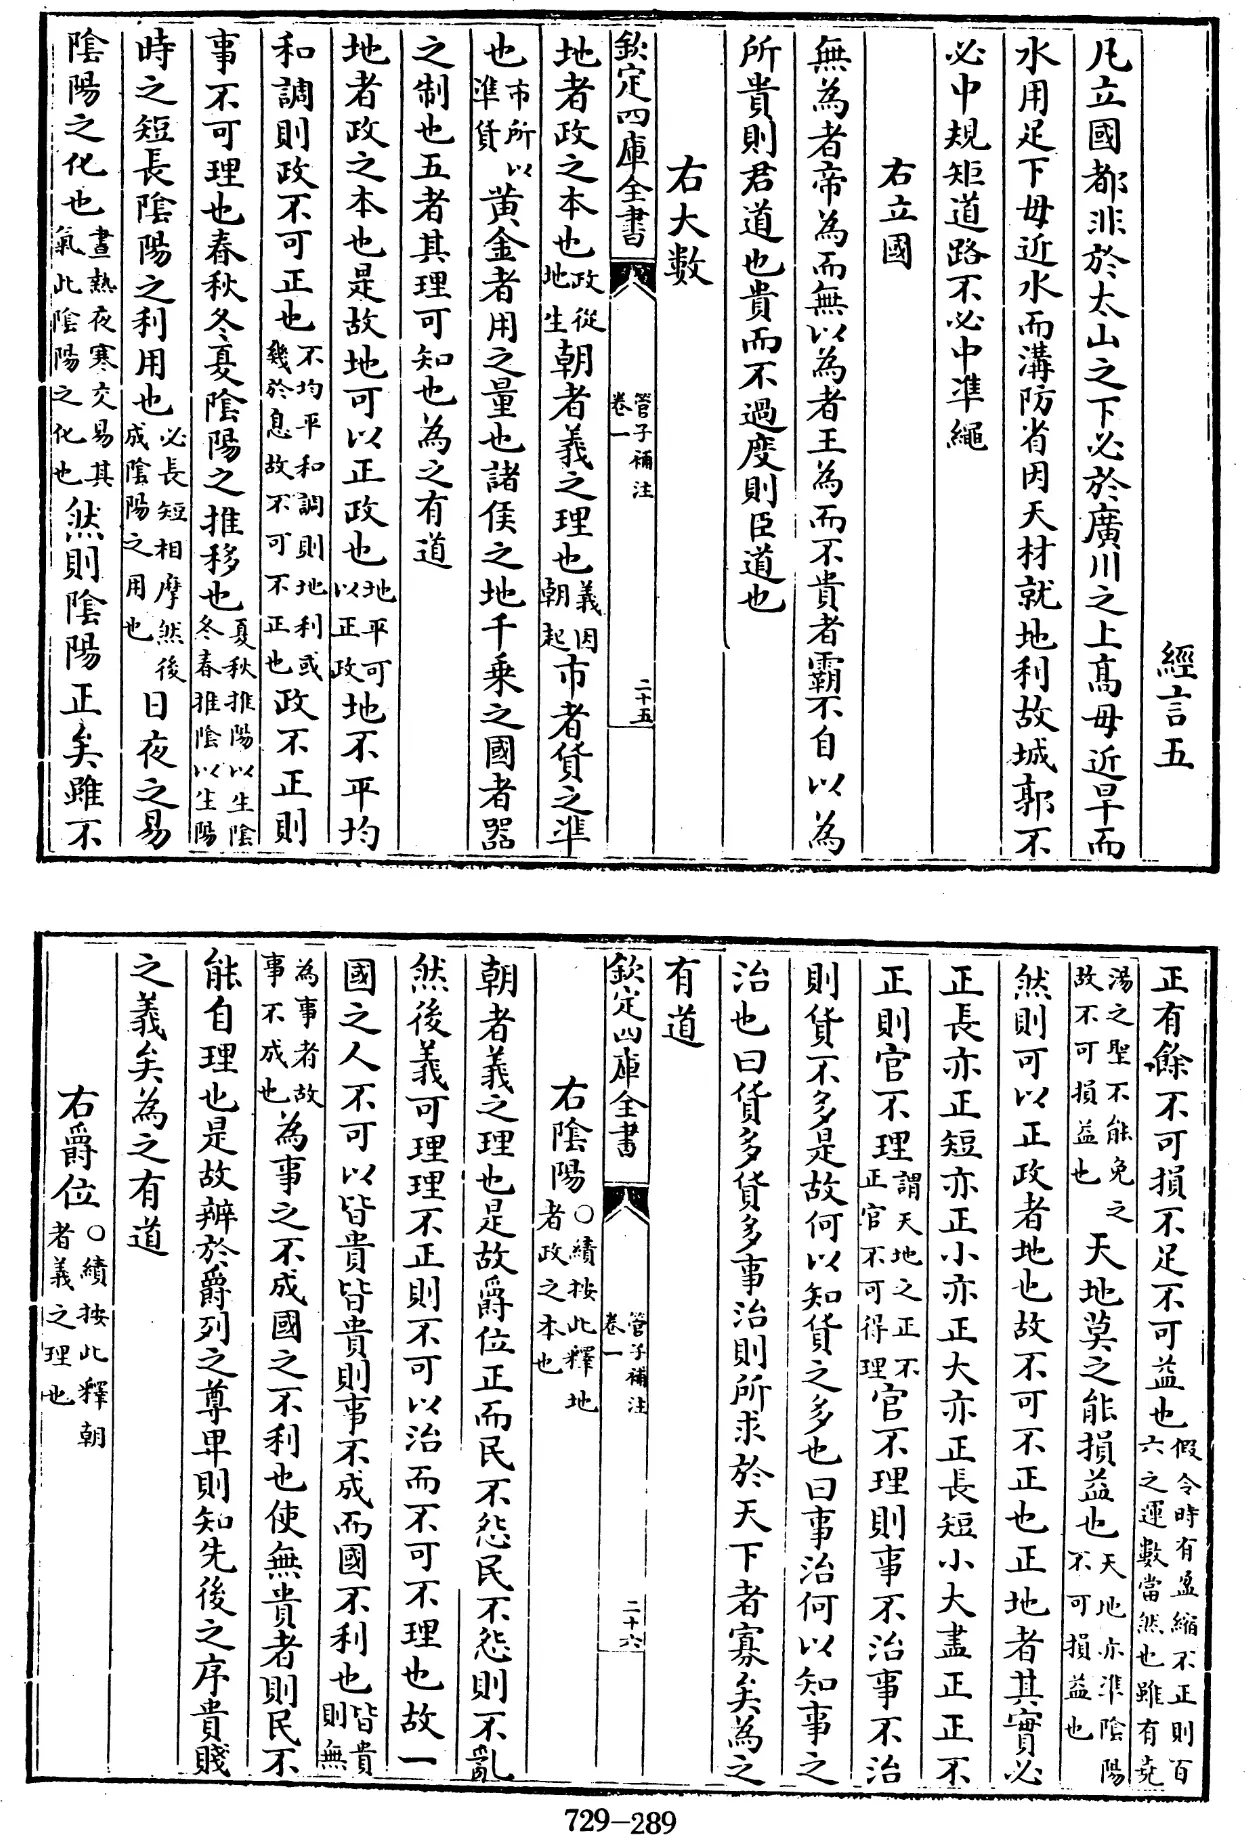 經言五
凡立國都非於太山之下必於廣川之上高毋近旱而
水用足下毋近水而溝防省因天材就地利故城郭不
必中規矩道路不必中準繩
右立國
無為者帝為而無以為者王為而不貴者霸不自以為
所貴則君道也貴而不過度則臣道也
右大數
欽定四庫全書
管子補注
卷一
二十五
地者政之本也政從地生朝者義之理也義因朝起市者貨之準
也市所以準貨黄金者用之量也諸侯之地千乗之國者器
之制也五者其理可知也為之有道
地者政之本也是故地可以正政也地平可以正政地不平均
和調則政不可正也不均平和調則地利或幾於息故不可不正也政不正則
事不可理也春秋冬夏隂陽之推移也夏秋推陽以生隂冬春推隂以生陽
時之短長隂陽之利用也必長短相摩然後成隂陽之用也日夜之易
隂陽之化也晝熱夜寒交易其氣此隂陽之化也然則隂陽正矣雖不
正有餘不可損不足不可益也假令時有盈縮不正則百六之運數當然也雖有堯
湯之聖不能免之故不可損益也天地莫之能損益也天地亦準隂陽不可損益也
然則可以正政者地也故不可不正也正地者其實必
正長亦正短亦正小亦正大亦正長短小大盡正正不
正則官不理謂天地之正不正官不可得理官不理則事不治事不治
則貨不多是故何以知貨之多也曰事治何以知事之
治也曰貨多貨多事治則所求於天下者寡矣為之
有道
欽定四庫全書
管子補注
卷一
二十六
右隂陽○績按此釋地者政之本也
朝者義之理也是故爵位正而民不怨民不怨則不亂
然後義可理理不正則不可以治而不可不理也故一
國之人不可以皆貴皆貴則事不成而國不利也皆貴則無
為事者故事不成也為事之不成國之不利也使無貴者則民不
能自理也是故辨於爵列之尊卑則知先後之序貴賤
之義矣為之有道
右爵位○績按此釋朝者義之理也
729-289